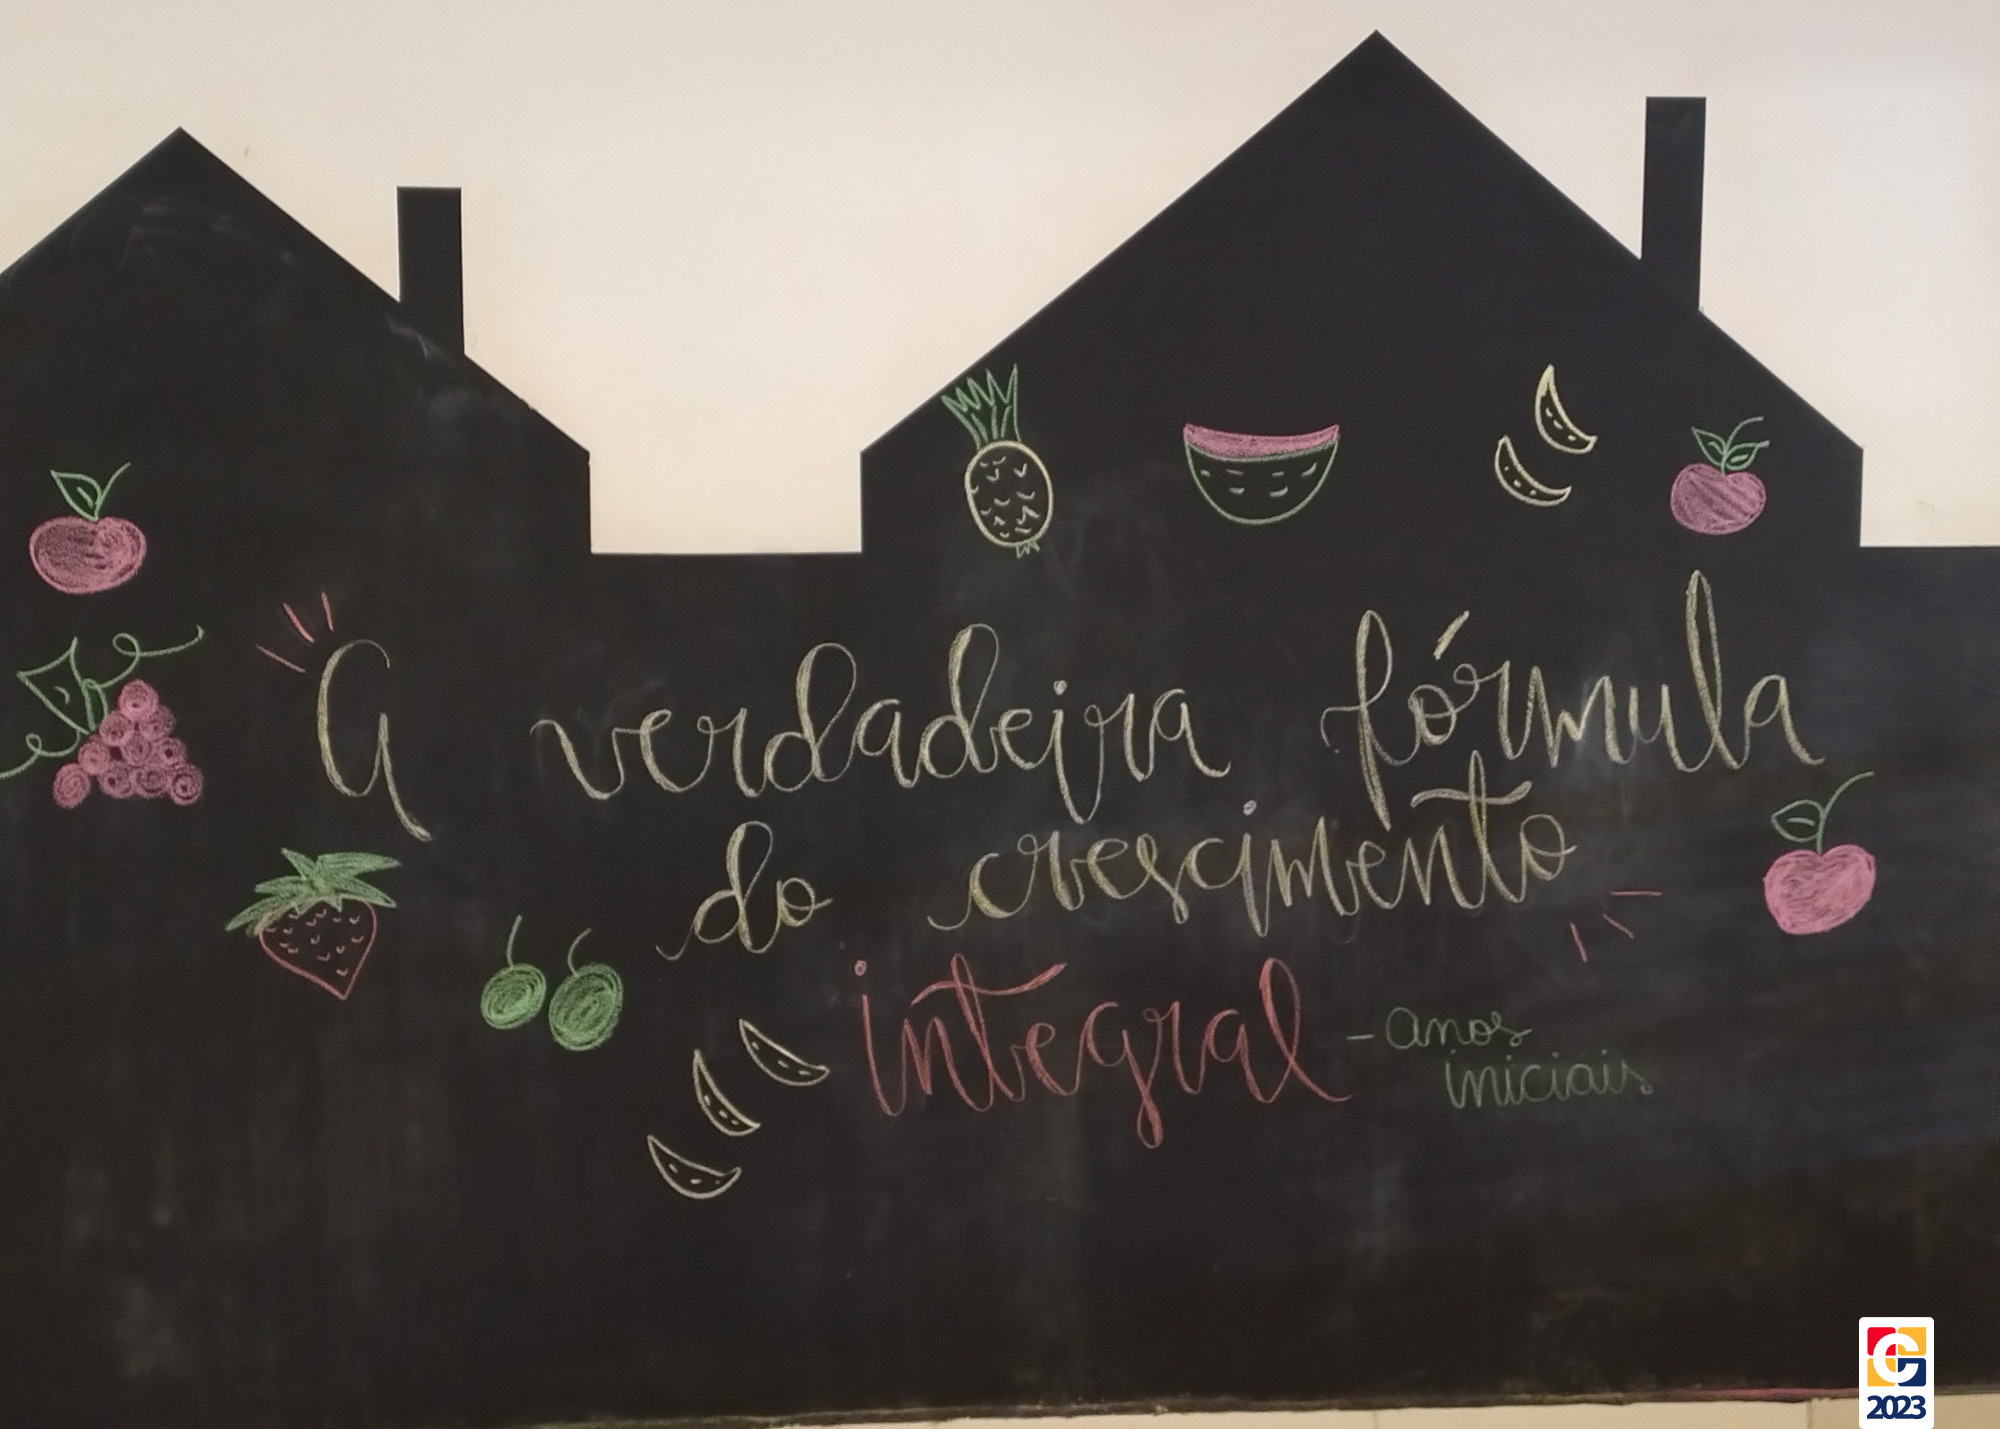 A verdadeira fórmula
do crescimento
integral - anos
iniciais
2023